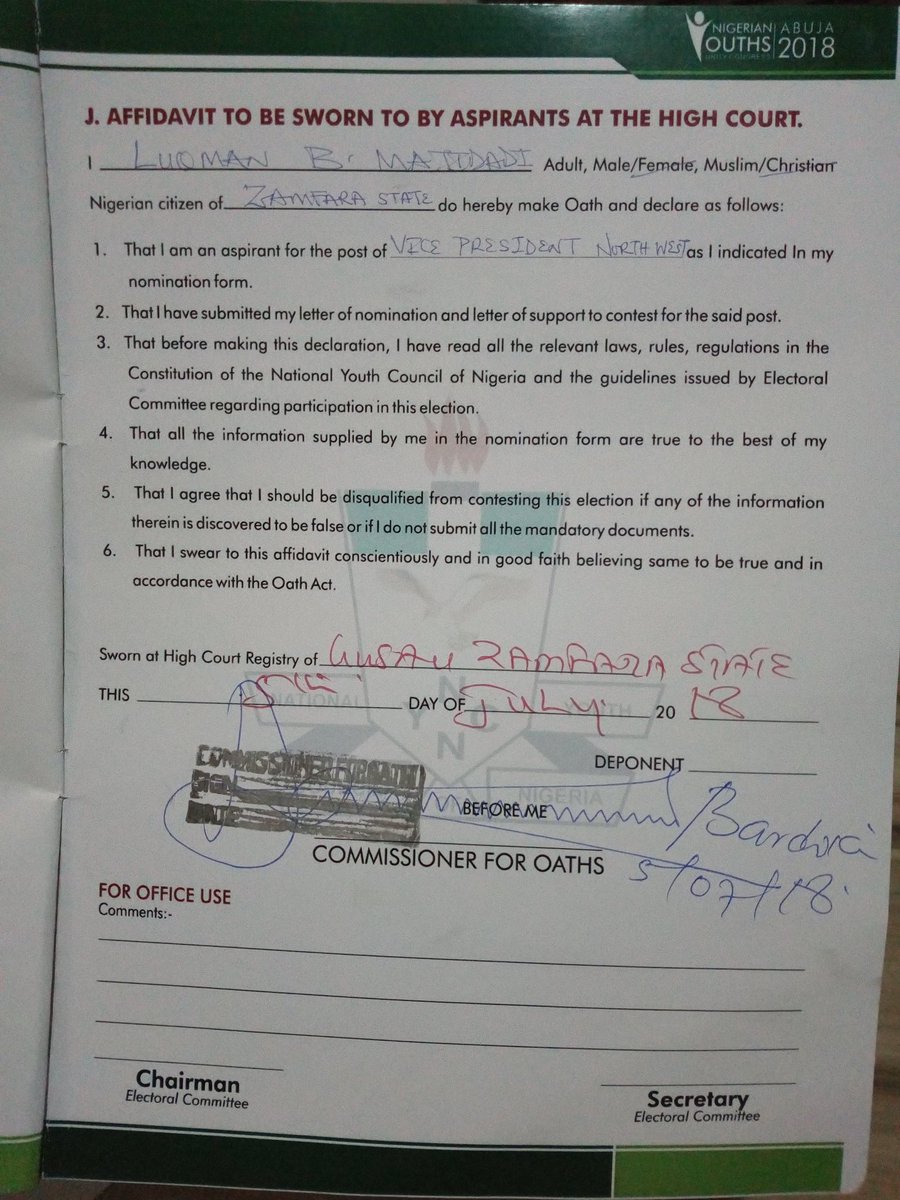 NIGERIAN YOUTHS UNITY CONGRESS ABUJA 2018
J. AFFIDAVIT TO BE SWORN TO BY ASPIRANTS AT THE HIGH COURT.
I LUQMAN B. MAJIDADI Adult, Male/Female, Muslim/Christian
Nigerian citizen of ZAMFARA STATE do hereby make Oath and declare as follows:
1. That I am an aspirant for the post of VICE PRESIDENT NORTH WEST as I indicated In my
nomination form.
2. That I have submitted my letter of nomination and letter of support to contest for the said post.
3. That before making this declaration, I have read all the relevant laws, rules, regulations in the
Constitution of the National Youth Council of Nigeria and the guidelines issued by Electoral
Committee regarding participation in this election.
4. That all the information supplied by me in the nomination form are true to the best of my
knowledge.
5. That I agree that I should be disqualified from contesting this election if any of the information
therein is discovered to be false or if I do not submit all the mandatory documents.
6. That I swear to this affidavit conscientiously and in good faith believing same to be true and in
accordance with the Oath Act.
Sworn at High Court Registry of GUSAU ZAMFARA STATE
THIS DAY OF JULY 20 18
NATIONAL YOUTH
NYCN
DEPONENT
COMMISSIONER FOR OATH
SIGN
DATE
NIGERIA
BEFORE ME
COMMISSIONER FOR OATHS
5/07/18
FOR OFFICE USE
Comments:-
Chairman
Electoral Committee
Secretary
Electoral Committee